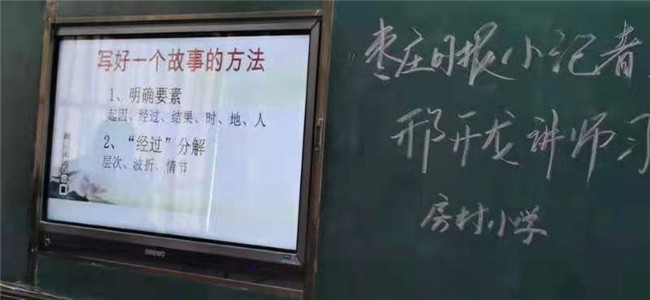 写好一个故事的方法
1、明确要素
起因、经过、结果、时、地、人
2、“经过”分解
层次、波折、情节
枣庄日报小记者
邢开龙讲师
房村小学